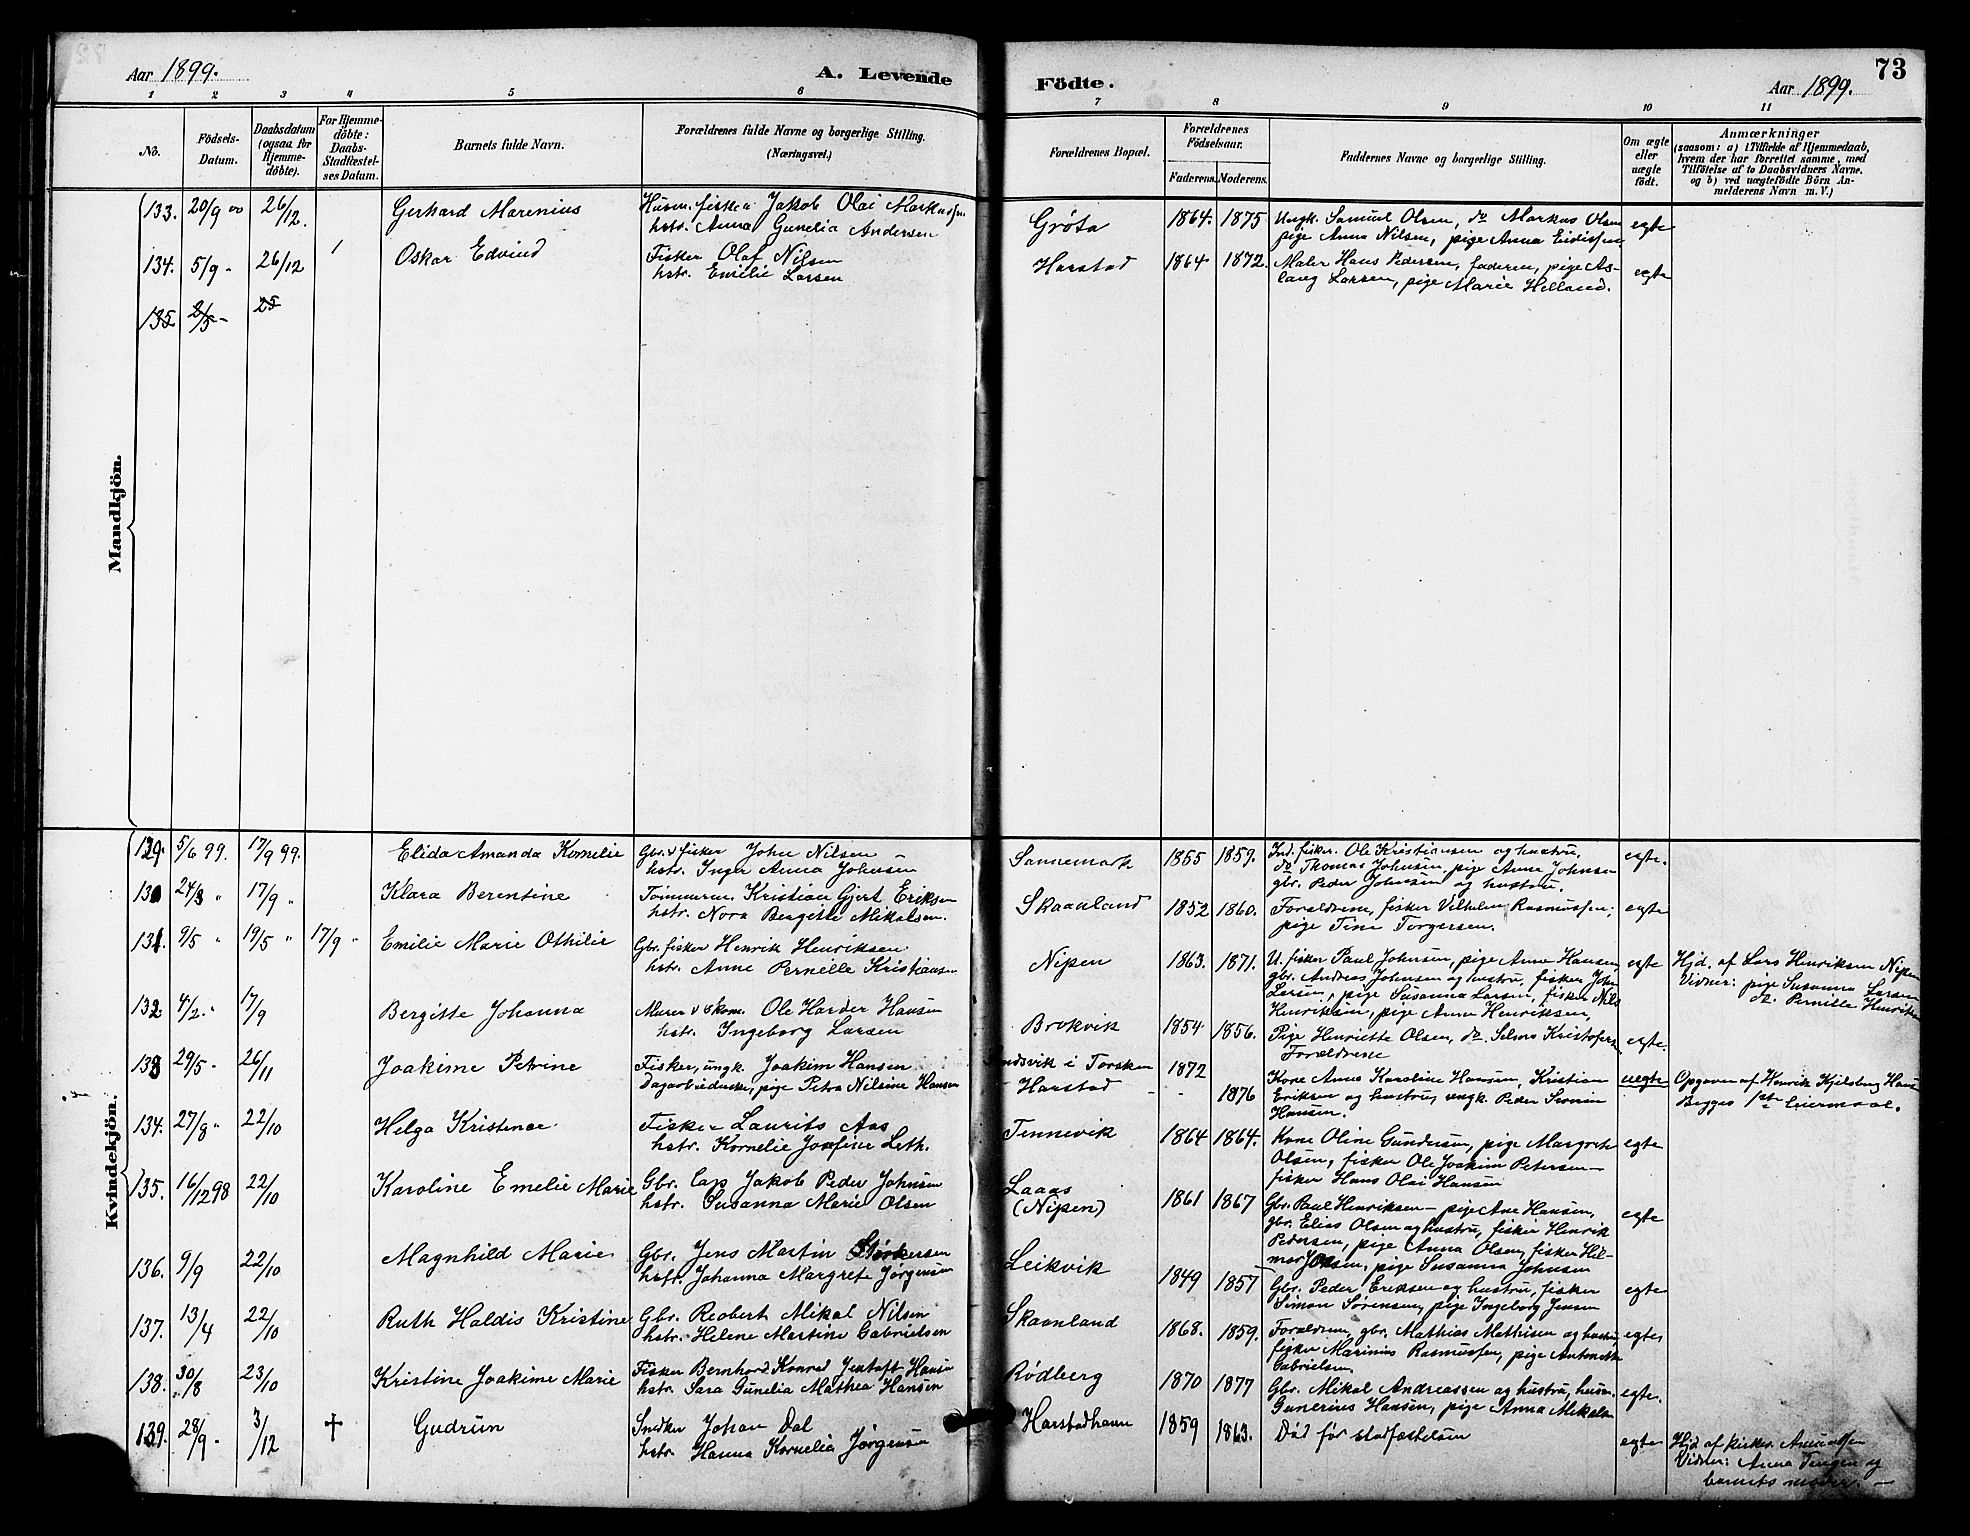 Aar 1899.
A. Levende
Födte.
Aar 1899.
73
1 2 3 4 5 6 7 8 9 10 11
No.
Födsels-
Datum.
Daabsdatum
(ogsaa for
Hjemme-
döbte).
For Hjemme-
döbte:
Daabs-
Stadfæstel-
ses Datum.
Barnets fulde Navn.
Forældrenes fulde Navne og borgerlige Stilling.
(Næringsvei.)
Forældrenes Bopæl.
Forældrenes
Födselsaar.
Faderens. Moderens.
Faddernes Navne og borgerlige Stilling.
Om ægte
eller
uægte
født.
Anmærkninger
(saasom: a) i Tilfælde af Hjemmedaab,
hvem der har forrettet samme, med
Tilföielse af to Daabsvidners Navne.
og b) ved uægtefödte Börn An-
melderens Navn m. V.)
Mandkjön.
133. 20/9 26/12. Gerhard Marenius
Husm. fisker Jakob Olai Markussen
hstr. Anna Gunelia Andersen
Grøta 1864. 1875
Ungk. Samuel Olsen, do Markus Olsen
pige Anna Nilsen, pige Anna Eidissen
egte
134. 5/9 26/12 Oskar Edvind
Fisker Olaf Nilsen
hstr. Emilie Larsen
Harstad 1864 1872.
Maler Hans Pedersen, faderen, pige As-
laug Larsen, pige Marie Helland.
egte
135 2/5 25
Kvindekjön.
129. 5/6 99. 17/9 99. Elida Amanda Kornelie
Gbr. v fisker John Nilsen
hstr. Inger Anna Johnsen
Sannemark 1855 1859.
Ind. fisker. Ole Kristiansen og hustru,
do Thomas Johnsen, pige Anna Johnsen
gbr. Peder Johnsen og hustru.
egte.
130 24/3 " 17/9 " Klara Berentine
Tømmerm. Kristian Gjert Eriksen
hstr. Nora Bergitte Mikalsen.
Skaanland 1852 1860.
Forældrene, fisker Vilhelm Rasmussen,
pige Tine Torgersen.
egte
131. 9/5 " 19/5 " 17/9 " Emilie Marie Othilie
Gbr. fisker Henrik Henriksen
hstr. Anne Pernille Kristiansen
Nipen 1863. 1871.
U. fisker Paul Johnsen, pige Anne Hansen,
gbr. Andreas Johnsen og hustru, fisker John
Larsen, pige Susanna Larsen, fisker Nils
Henriksen, pige Anna Henriksen,
egte
Hjd. af Lars Henriksen Nipen
Vidner: pige Susanna Larsen
do. Pernille Henriksen
132. 4/2. " 17/9 Bergitte Johanna
Murer v økon. Ole Harder Hansen
hstr. Ingeborg Larsen
Brokvik 1854 1856.
Pige Henriette Olsen, do. Selma Kristofersen
Forældrene
egte.
133 29/5 - 26/11 Joakime Petrine
Fisker, ungk. Joakim Hansen
Dagarbeiderske, pige Petra Nilsine Hansen
i Torsken 1872
Harstad - - 1876
Kone Anna Karoline Hansen, Kristian
Eriksen og hustru, ungk. Peder
Hansen.
uegte
Opgaven af Henrik Kjelsberg Hans
Begges 1ste leiermaal.
134. 27/8 " 22/10 Helga Kristense
Fisker Laurits Aas
hstr. Kornelie Josefine Leth.
Tennevik 1864 1864.
Kone Oline Gundersen, pige Margrete
Olsen, fisker Ole Joakim Petersen
fisker Hans Olai Hansen
egte
135. 16/12 98 22/10 Karoline Emelie Marie
Gbr. Jakob Peder Johnsen
hstr. Susanna Marie Olsen
Laaas
(Nipen) 1861 1867
Gbr. Paul Henriksen - pige Ane Hansen,
gbr. Elias Olsen og hustru, fisker Henrik
Pedersen, pige Anna Olsen, fisker Hil-
mar Olsen, pige Susanna Johnsen
egte
136. 9/9 22/10 Magnhild Marie
Gbr. Jens Martin Størkersen
hstr. Johanna Margrete Jørgensen
Leikvik 1849 1857
Gbr. Peder Eriksen og hustru, fisker
Simon Sørensen, pige Ingeborg Jensen
egte
137. 13/4 22/10 Ruth Haldis Kristine
Gbr. Reobert Mikal Nilsen
hstr. Helene Martine Gabrielsen
Skaanland 1868. 1859.
Forældrene, gbr. Mathias Mathisen og hustru
fisker Marinius Rasmussen, pige
Gabrielsen.
egte
138. 30/8 23/10 Kristine Joakime Marie
Fisker Bernhard Konrad Jentoft Hansen
hstr. Sara Gunelia Mathea Hansen
Rødberg 1870 1877
Gbr. Mikal Andreassen og hustru, husm.
Gunerius Hansen, pige Anna Mikalsen
egte.
139. 28/9 - 3/12 † Gudrun
Snedker Johan Dal
hstr. Hanna Kornelia Jørgensen
Harstadhavn 1859 1863.
Død før stadfæstelsen
egte
Hjd af kirkes. Amundsen
Vidner: Anna Tingen og
barnets moder. -